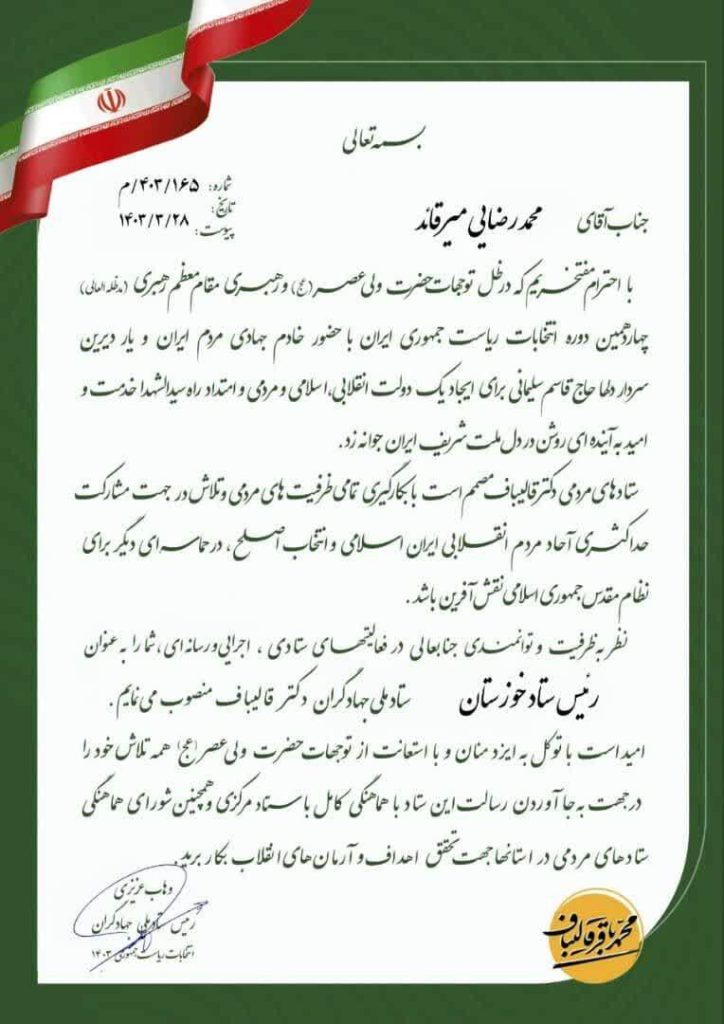 بسمه تعالی
شماره: ۴۰۳/۱۶۵/م
تاریخ: ۱۴۰۳/۳/۲۸
پیوست:
جناب آقای محمد رضایی میرقائد
با احترام مفتخریم که در ظل توجهات حضرت ولی عصر (عج) و رهبری مقام معظم رهبری (مدظله العالی)
چهاردهمین دوره انتخابات ریاست جمهوری ایران با حضور خادم جهادی مردم ایران و یار دیرین
سردار دلها حاج قاسم سلیمانی برای ایجاد یک دولت انقلابی، اسلامی و مردمی و امتداد راه سیدالشهدا خدمت و
امید به آینده ای روشن در دل ملت شریف ایران جوانه زد.
ستادهای مردمی دکتر قالیباف مصمم است با بکارگیری تمامی ظرفیت های مردمی و تلاش در جهت مشارکت
حداکثری آحاد مردم انقلابی ایران اسلامی و انتخاب اصلح، در حماسه ای دیگر برای
نظام مقدس جمهوری اسلامی نقش آفرین باشد.
نظر به ظرفیت و توانمندی جنابعالی در فعالیتهای ستادی، اجرایی و رسانه ای، شما را به عنوان
رئیس ستاد خوزستان ستاد ملی جهادگران دکتر قالیباف منصوب می نمایم.
امید است با توکل به ایزد منان و با استعانت از توجهات حضرت ولی عصر (عج) همه تلاش خود را
در جهت به جا آوردن رسالت این ستاد با هماهنگی کامل با ستاد مرکزی و همچنین شورای هماهنگی
ستادهای مردمی در استانها جهت تحقق اهداف و آرمان های انقلاب بکار برید.
وهاب عزیزی
رئیس ستاد ملی جهادگران
انتخابات ریاست جمهوری ۱۴۰۳
محمدباقر قالیباف